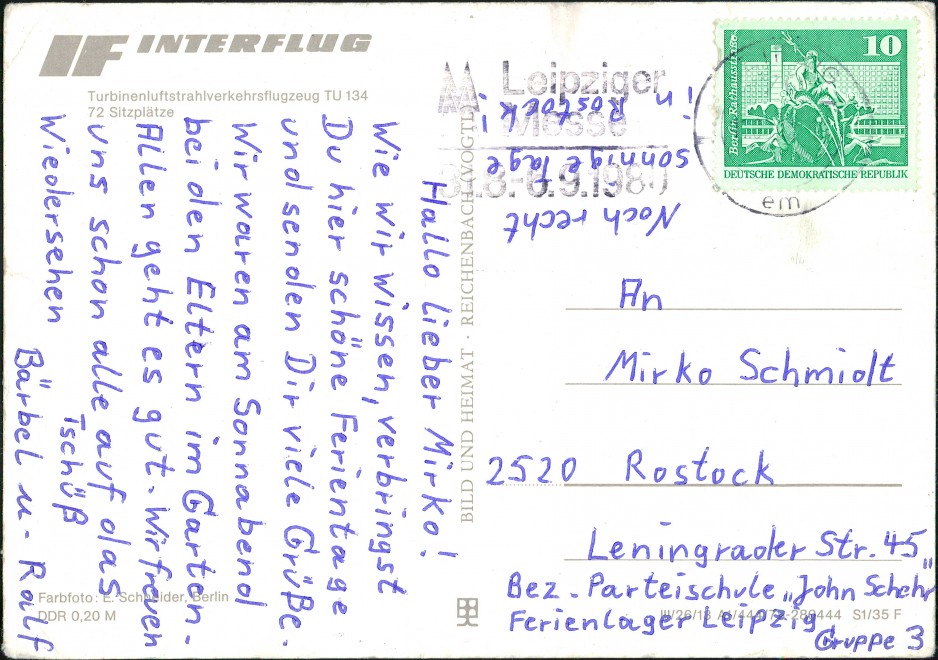 IF INTERFLUG
Turbinenluftstrahlverkehrsflugzeug TU 134
72 Sitzplätze
Hallo lieber Mirko!
Wie wir wissen, verbringst
Du hier schöne Ferientage
und senden Dir viele Grüße.
Wir waren am Sonnabend
bei den Eltern im Garten.
Allen geht es gut. Wir freuen
uns schon alle auf das
Wiedersehen
Tschüß
Bärbel u. Ralf
Noch recht
sonnige Tage
in Rostock!
Farbfoto: E. Schneider, Berlin
DDR 0,20 M
BILD UND HEIMAT · REICHENBACH (VOGTL)
Leipziger
Messe
31.8.-6.9.1980
em
10
Berlin, Rathausstraße
DEUTSCHE DEMOKRATISCHE REPUBLIK
An
Mirko Schmidt
2520 Rostock
Leningrader Str. 45
Bez. Parteischule „John Schehr"
Ferienlager Leipzig,
Gruppe 3
S1/35 F